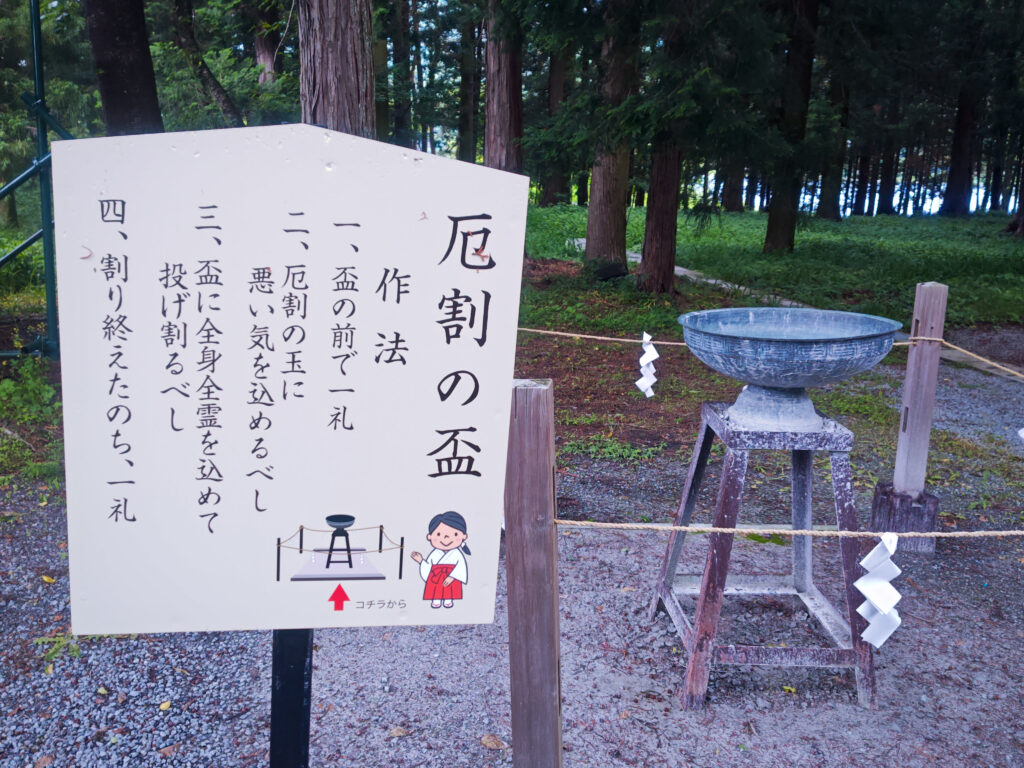 厄割の盃
作法
一、盃の前で一礼
二、厄割の玉に
悪い気を込めるべし
三、盃に全身全霊を込めて
投げ割るべし
四、割り終えたのち、一礼
コチラから